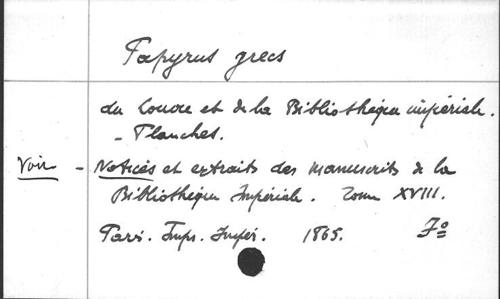 Papyrus grecs
du Louvre et de la Bibliothèque impériale.
- Planches.
Voir - Notices et extraits des manuscrits de la
Bibliothèque Impériale. Tome XVIII.
Paris. Imp. Impér. 1865. Fo